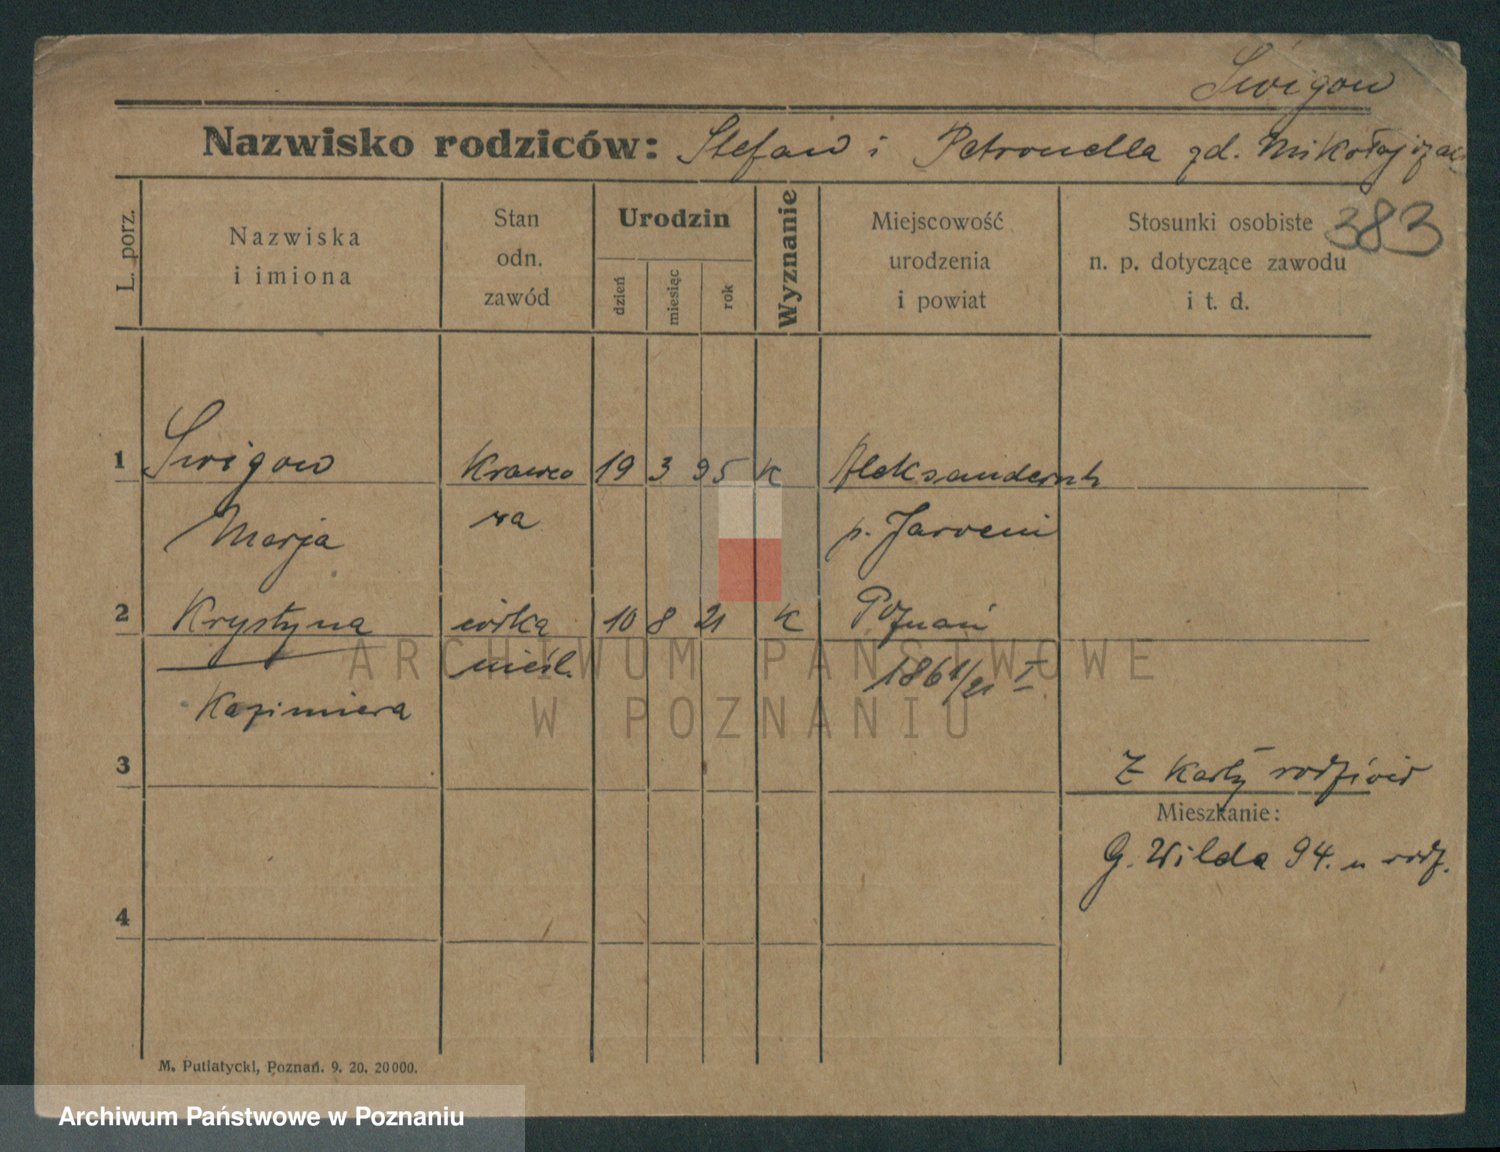 Swigow
Nazwisko rodziców: Stefan i Petronella zd. Mikołajczak
383
L. porz.
Nazwiska
i imiona
Stan
odn.
zawód
Urodzin
dzień
miesiąc
rok
Wyznanie
Miejscowość
urodzenia
i powiat
Stosunki osobiste
n. p. dotyczące zawodu
i t. d.
1 Swigow Krawco 19 3 95 K
Marja wa p.
2 Krystyna córka 10 8 21 K Poznań
Kazimiera nieśl.
3
Z Karty rodziców
Mieszkanie:
G. Wilda 94. u rodz.
4
M. Putiatycki, Poznań. 9. 20. 20000.
ARCHIWUM PAŃSTWOWE
W POZNANIU
Archiwum Państwowe w Poznaniu